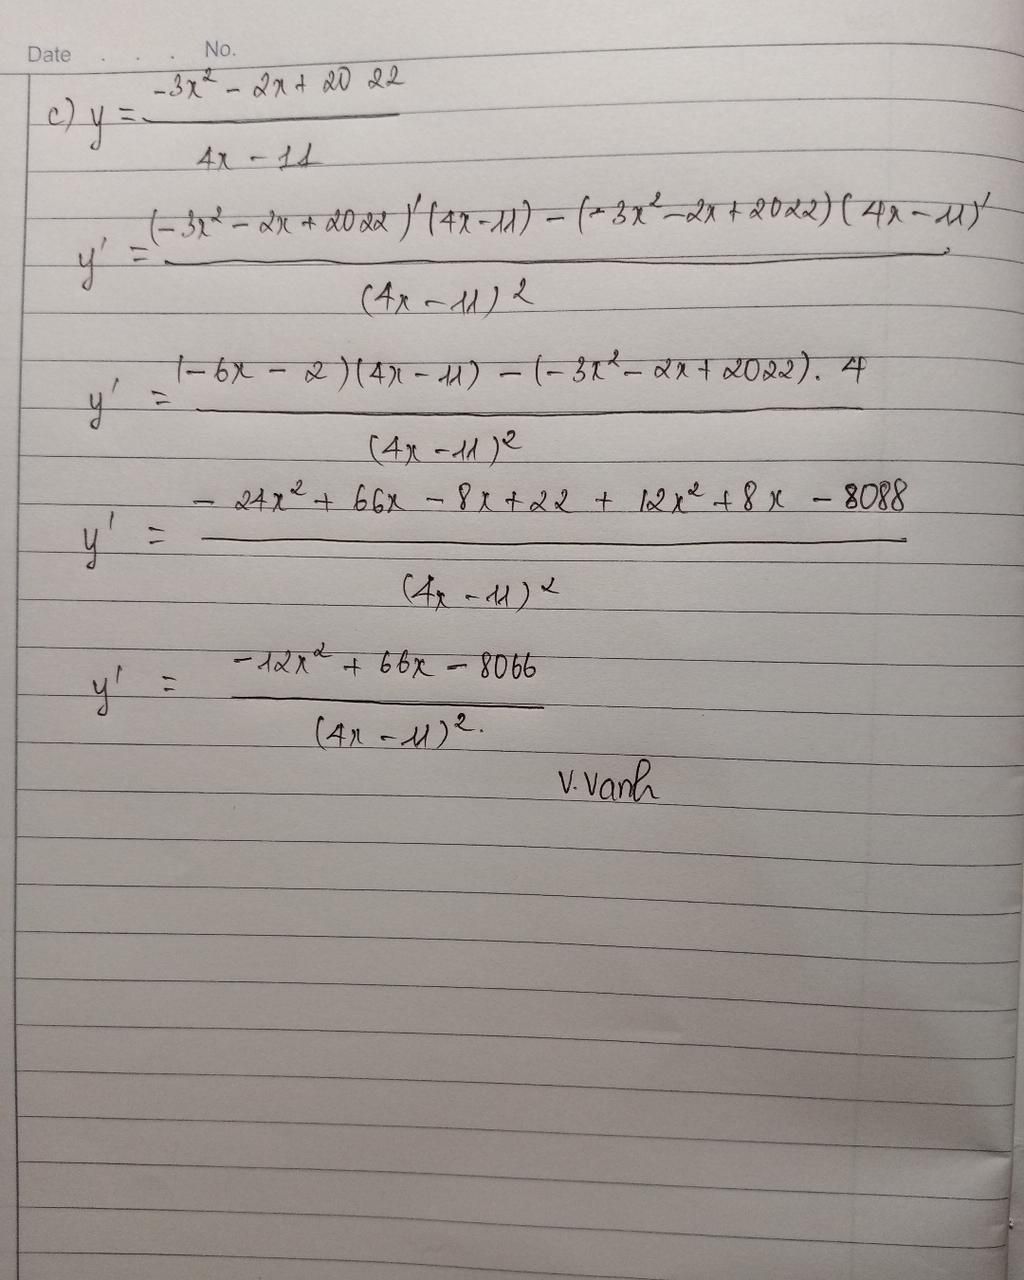 Date . . . No.
c) y = (-3x² - 2x + 2022) / (4x - 11)
y' = ((-3x² - 2x + 2022)'(4x - 11) - (-3x² - 2x + 2022)(4x - 11)') / (4x - 11)²
y' = ((-6x - 2)(4x - 11) - (-3x² - 2x + 2022). 4) / (4x - 11)²
y' = (-24x² + 66x - 8x + 22 + 12x² + 8x - 8088) / (4x - 11)²
y' = (-12x² + 66x - 8066) / (4x - 11)².
V.Vanh